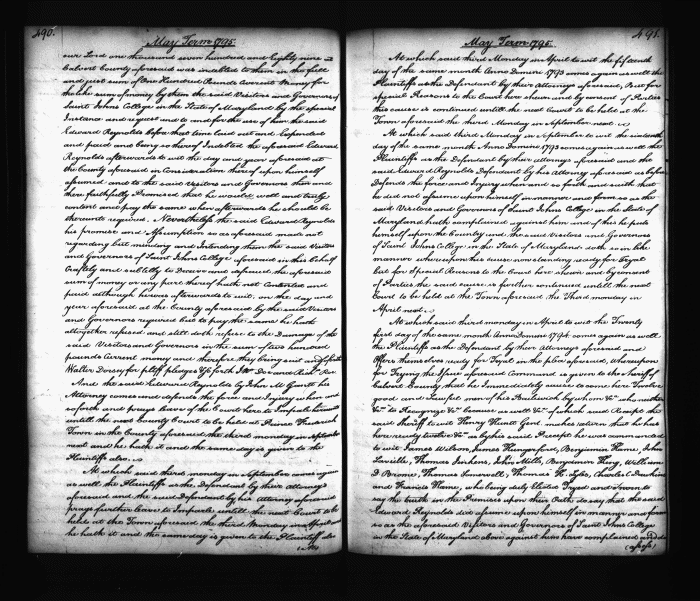 490.
May Term 1795
our Lord one thousand seven hundred and Eighty nine at
Calvert County aforesaid was indebted to them in the full
and just sum of One Hundred Pounds Current Money for
the like sum of money by them the said Visitors and Governors of
Saint Johns College in the State of Maryland by the special
Instance and request and to and for the use of him the said
Edward Reynolds before that time laid out and Expended
and paid and being so thereof Indebted the aforesaid Edward
Reynolds afterwards to wit the day and year aforesaid at
the County aforesaid in Consideration thereof upon himself
assumed and to the said Visitors and Governors then and
there faithfully Promised that he would well and truly
content and pay the same when afterwards he should be
thereunto required. Nevertheless the said Edward Reynolds
his promise and Assumption so as aforesaid made not
regarding but meaning and Intending them the said Visitors
and Governors of Saint Johns College aforesaid in this behalf
Craftily and subtilly to Deceive and defraud the aforesaid
sum of money or any part thereof hath not Contented and
paid although he was afterwards to wit on the day and
year aforesaid at the County aforesaid by the said Visitors
and Governors required but to pay the same he hath
altogether refused and still doth refuse to the Damage of the
said Visitors and Governors in the sum of two hundred
pounds Current money and therefore they bring suit and so forth
Walter Dorsey for pltff pledges &c forth Jno Doe and Richd Roe
And the said Edward Reynolds by John M Gantt his
Attorney comes and defends the force and Injury when and
so forth and prays leave of the Court here to Imparle hereunto
untill the next County Court to be held at Prince Frederick
Town in the County aforesaid the third monday in September
next and he hath it and the same day is given to the
Plaintiffs also.
At which said third monday in September came again
as well the Plaintiffs as the Defendant by their Attorneys
aforesaid and the said Defendant by his Attorney aforesaid
prays further leave to Imparle untill the next Court to be
held at the Town aforesaid the third Monday in April next
he hath it and the same day is given to the Plaintiff also
491.
May Term 1795
At which said third Monday in April to wit the fifteenth
day of the same month Anno Domini 1793 comes again as well the
Plaintiffs as the Defendant by their Attorneys aforesaid, But for
special Reasons to the Court here shown and by consent of Parties
this cause is continued untill the next Court to be held at the
Town aforesaid the third Monday in September next.
At which said third Monday in September to wit the sixteenth
day of the same month Anno Domini 1793 comes again as well the
Plaintiffs as the Defendant by their attorneys aforesaid and the
said Edward Reynolds by his Attorney aforesaid as before
Defends the force and Injury when and so forth and saith that
he did not assume upon himself in manner and form as the
said Visitors and Governors of Saint Johns College in the State of
Maryland hath complained against him and of this he puts
himself upon the Country and the said Visitors and Governors
of Saint Johns College in the State of Maryland doth so in like
manner whereupon this cause now standing ready for Tryal
but for Special Reasons to the Court here shown and by consent
of Parties the said cause is further continued untill the next
Court to be held at the Town aforesaid the Third monday in
April next.
At which said third monday in April to wit the Twenty
first day of the same month Anno Domini 1794 comes again as well
the Plaintiffs as the Defendant by their Attorneys aforesaid and
Offers themselves ready for Tryal in the plea aforesaid, whereupon
for Trying the Issue aforesaid Command is given to the Sheriff of
Calvert County that he Immediately cause to come here Twelve
good and Lawful men of his Bailiwick by whom &c who neither
&c to Recognize &c because as well &c of which said Precept the
said Sheriff to wit Henry Huntt Gent. makes return that he has
here ready twelve &c as by his said Precept he was commanded
to wit James Wilson, James Hungerford, Benjamin Hance, John
Laveille, Thomas Jenkens, John Mills, Benjamin King, William
D Broome, Thomas Simmons, Thomas Charles Dawkins
and Francis Hance, who being duly Elected Tryed and Sworn to
say the truth in the Premises upon their Oath do say that the said
Edward Reynolds did assume upon himself in manner and form
so as the aforesaid Visitors and Governors of Saint Johns College
in the State of Maryland above against him have complained and do
(assess)